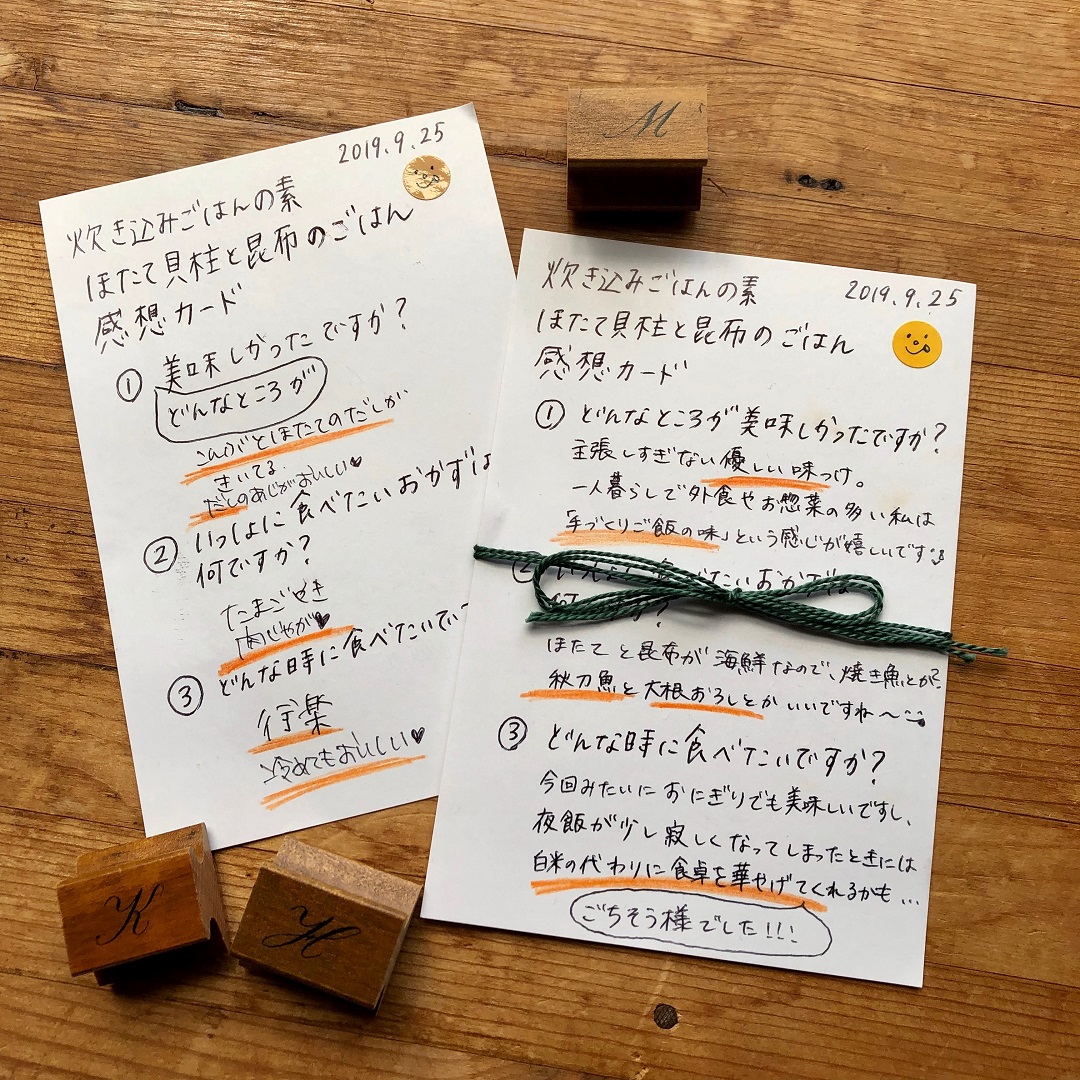 2019.9.25
炊き込みごはんの素
ほたて貝柱と昆布のごはん
感想カード
① 美味しかったですか?
どんなところが
こんぶとほたてのだしが
きいてる。
だとのあじがおいしい♥
② いっしょに食べたいおかずは
何ですか?
たまごやき
肉じゃが♥
③ どんな時に食べたいでい
行楽
冷めてもおいしい♥
2019.9.25
炊き込みごはんの素
ほたて貝柱と昆布のごはん
感想カード
① どんなところが美味しかったですか?
主張しすぎない優しい味つけ。
一人暮らしで外食やお惣菜の多い私は
「手づくりご飯の味」という感じが嬉しいです
② べたいおかずは
?
ほたてと昆布が海鮮なので、焼き魚とか?
秋刀魚と大根おろしとかいいですね〜
③ どんな時に食べたいですか?
今回みたいにおにぎりでも美味しいですし、
夜飯が少し寂しくなってしまったときには
白米の代わりに食卓を華やげてくれるかも...
ごちそう様でした!!!
M
K
H